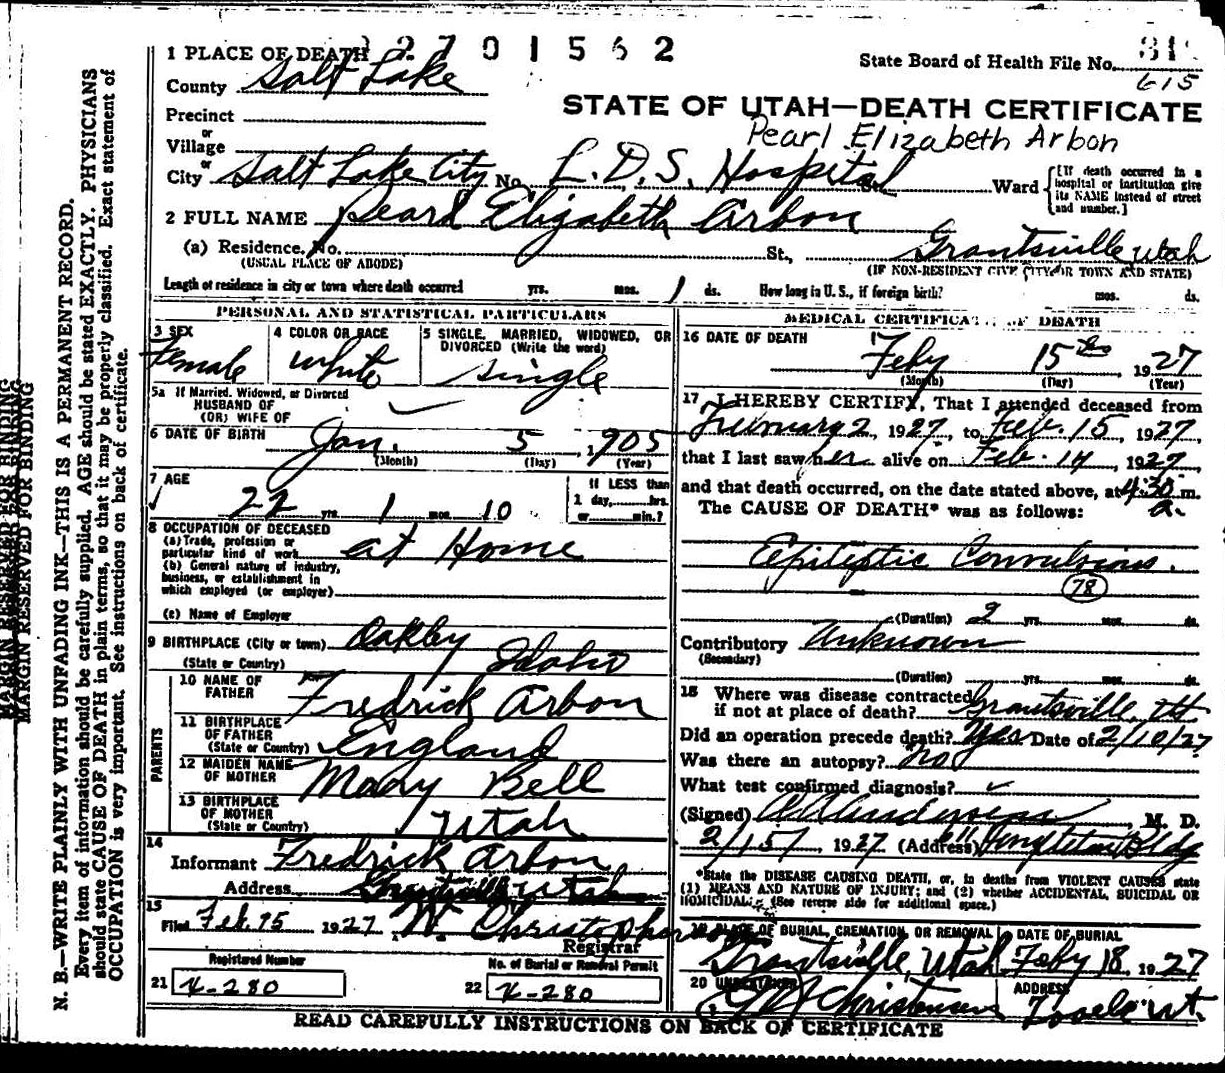 1 PLACE OF DEATH 2701562
State Board of Health File No. 318
615
County Salt Lake
STATE OF UTAH—DEATH CERTIFICATE
Precinct
Pearl Elizabeth Arbon
or
Village
or
City Salt Lake City No. L.D.S. Hospital St., Ward [If death occurred in a hospital or institution give its NAME instead of street and number.]
2 FULL NAME Pearl Elizabeth Arbon
(a) Residence. No. St., Grantsville Utah
(USUAL PLACE OF ABODE) (IF NON-RESIDENT GIVE CITY OR TOWN AND STATE)
Length of residence in city or town where death occurred yrs. mos. 1 ds. How long in U. S., if foreign birth? mos. ds.
PERSONAL AND STATISTICAL PARTICULARS
3 SEX Female
4 COLOR OR RACE White
5 SINGLE, MARRIED, WIDOWED, OR DIVORCED (Write the word) Single
5a If Married, Widowed, or Divorced
HUSBAND OF
(OR) WIFE OF
6 DATE OF BIRTH Jan. 5, 1905
(Month) (Day) (Year)
7 AGE 22 yrs. 1 mos. 10
If LESS than
1 day, hrs.
or min.?
8 OCCUPATION OF DECEASED
(a) Trade, profession or
particular kind of work at Home
(b) General nature of industry,
business, or establishment in
which employed (or employer)
(c) Name of Employer
9 BIRTHPLACE (City or town) Oakley
(State or Country) Idaho
PARENTS
10 NAME OF FATHER Fredrick Arbon
11 BIRTHPLACE OF FATHER (State or Country) England
12 MAIDEN NAME OF MOTHER Mary Bell
13 BIRTHPLACE OF MOTHER (State or Country) Utah
14
Informant Fredrick Arbon
Address Grantsville, Utah
15
Filed Feb. 15 1927, W. Christopherson
Registrar
Registered Number No. of Burial or Removal Permit
21 X-280 22 X-280
MEDICAL CERTIFICATE OF DEATH
16 DATE OF DEATH Feby 15th 1927
(Month) (Day) (Year)
17 I HEREBY CERTIFY, That I attended deceased from
February 2, 1927, to Feb. 15, 1927
that I last saw her alive on Feb. 14, 1927
and that death occurred, on the date stated above, at 4:30 a. m.
The CAUSE OF DEATH* was as follows:
Epileptic Convulsions.
78
(Duration) 2 yrs. mos. ds.
Contributory Unknown
(Secondary)
(Duration) yrs. mos. ds.
18 Where was disease contracted
if not at place of death? Grantsville, Ut
Did an operation precede death? Yes Date of 2/10/27
Was there an autopsy? No
What test confirmed diagnosis?
(Signed) M. D.
2/15, 1927 (Address) Bldg
*State the DISEASE CAUSING DEATH, or, in deaths from VIOLENT CAUSES state
(1) MEANS AND NATURE OF INJURY; and (2) whether ACCIDENTAL, SUICIDAL OR
HOMICIDAL. (See reverse side for additional space.)
19 PLACE OF BURIAL, CREMATION, OR REMOVAL DATE OF BURIAL
Grantsville, Utah Feby 18, 1927
20 UNDERTAKER ADDRESS
Christensen Tooele Ut.
READ CAREFULLY INSTRUCTIONS ON BACK OF CERTIFICATE
MARGIN RESERVED FOR BINDING
N. B.—WRITE PLAINLY WITH UNFADING INK—THIS IS A PERMANENT RECORD.
Every item of information should be carefully supplied. AGE should be stated EXACTLY. PHYSICIANS
should state CAUSE OF DEATH in plain terms, so that it may be properly classified. Exact statement of
OCCUPATION is very important. See instructions on back of certificate.